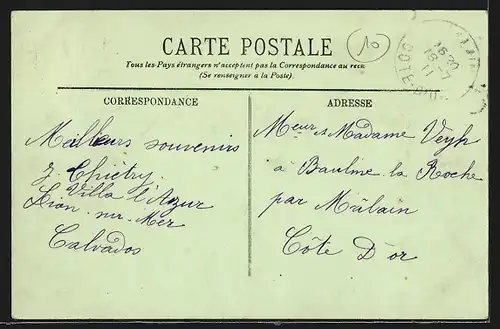 CARTE POSTALE
Tous les Pays étrangers n'acceptent pas la Correspondance au recto
(Se renseigner à la Poste).
10
CORRESPONDANCE
ADRESSE
Meilleurs souvenirs
J. Thiétry
Villa l'Azur
Lion-sur-Mer
Calvados
Meur & Madame Véyh
à Baulme la Roche
par Mâlain
Côte D'or
COTE D'OR